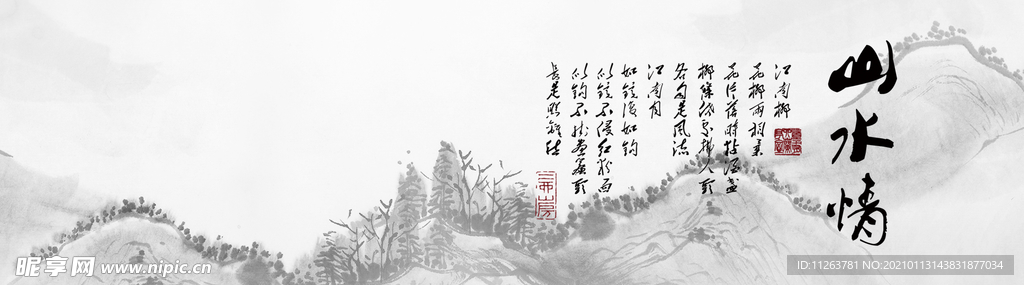 山水情
江南柳
花柳两相柔
花片落时黏酒盏
柳条低处拂人头
各自是风流
江南月
如镜复如钩
似镜不侵红粉面
似钩不挂画帘头
长是照离愁
昵享网 www.nipic.cn
ID:11263781 NO:20210113143831877034